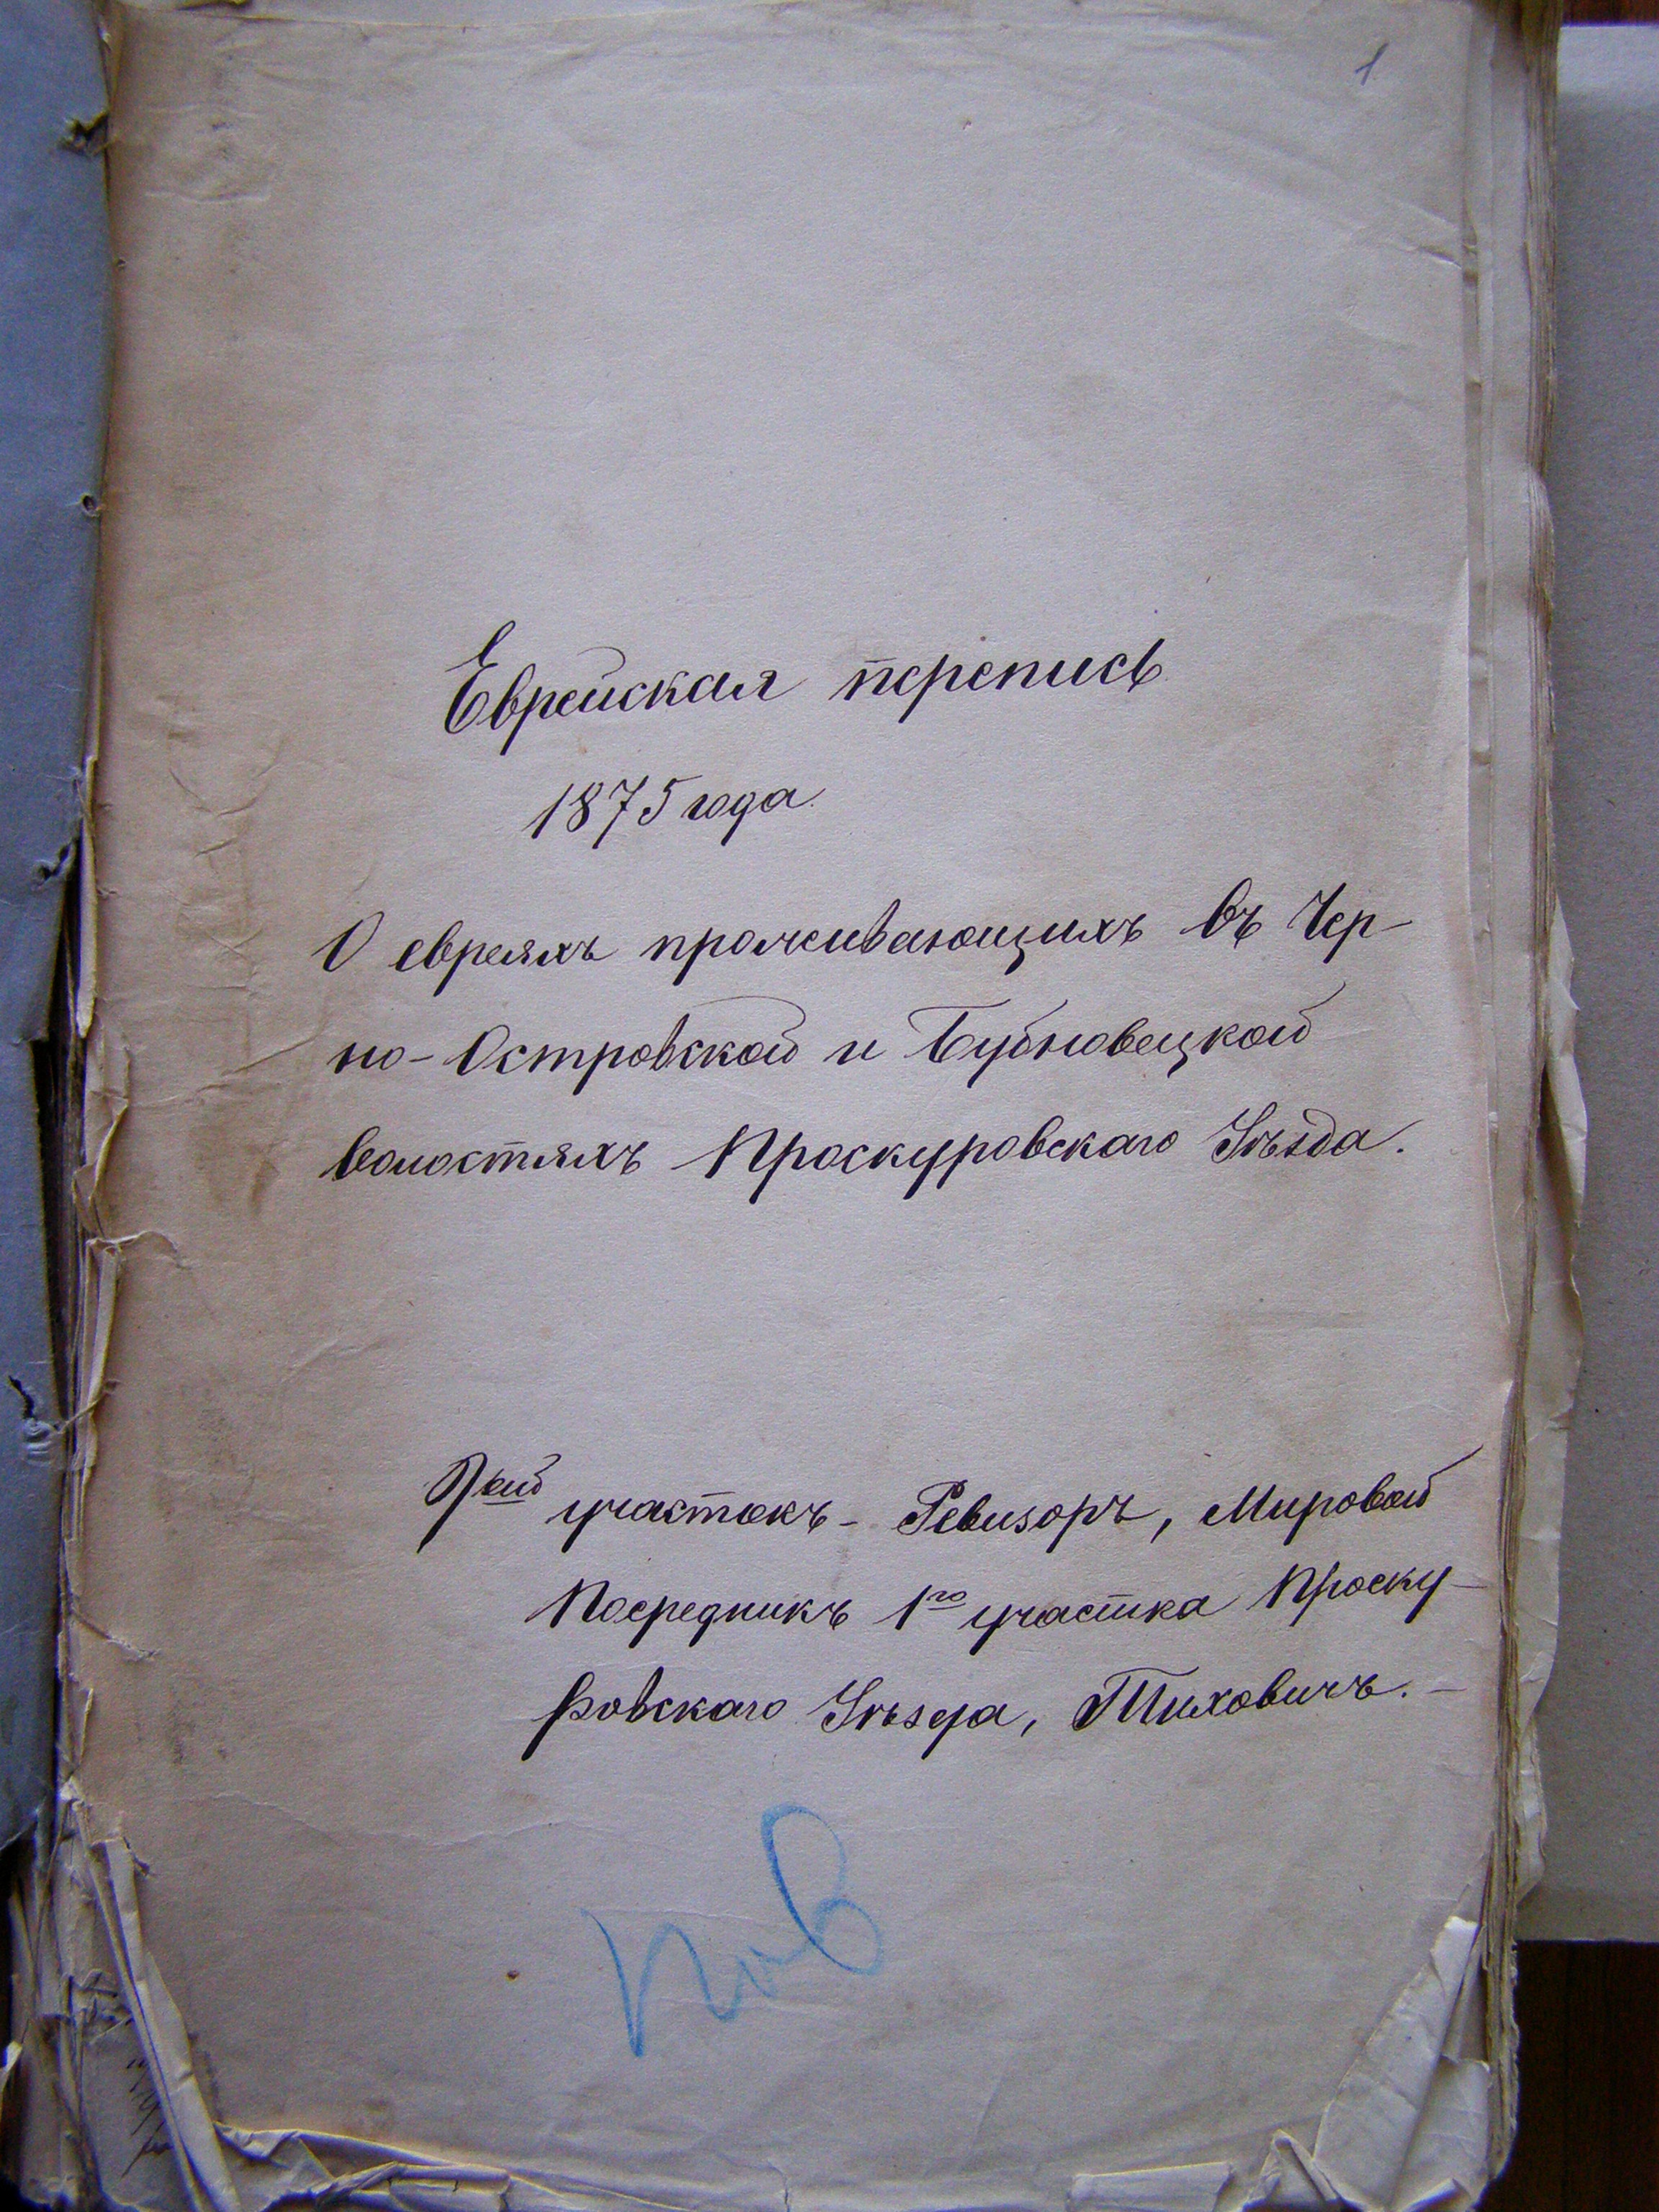 1
Еврейская перепись
1875 года.
О евреяхъ проживающихъ въ Чер-
но-Островской и Бубновецкой
волостяхъ Проскуровскаго Уѣзда.
1ый участокъ - Ревизоръ, Мировой
Посредникъ 1го участка Проску-
ровскаго Уѣзда, Тиховичъ. -